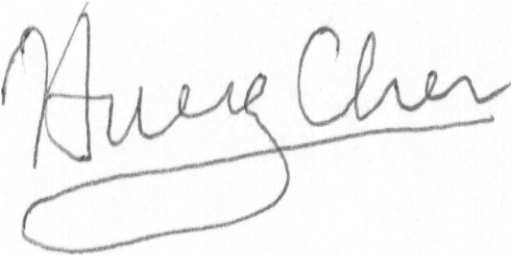 Hueg Chen